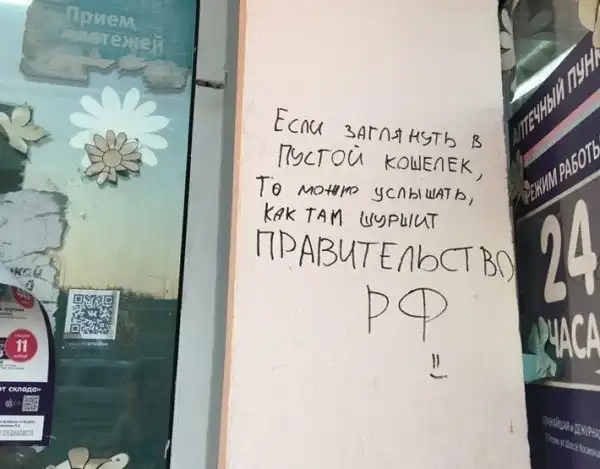 Прием
платежей
Если заглянуть в
пустой кошелек,
то можно услышать,
как там шуршит
ПРАВИТЕЛЬСТВО
РФ
АПТЕЧНЫЙ ПУНК
РЕЖИМ РАБОТЫ
24
ЧАСА
11
от склада»
СПЕЦИАЛИСТА